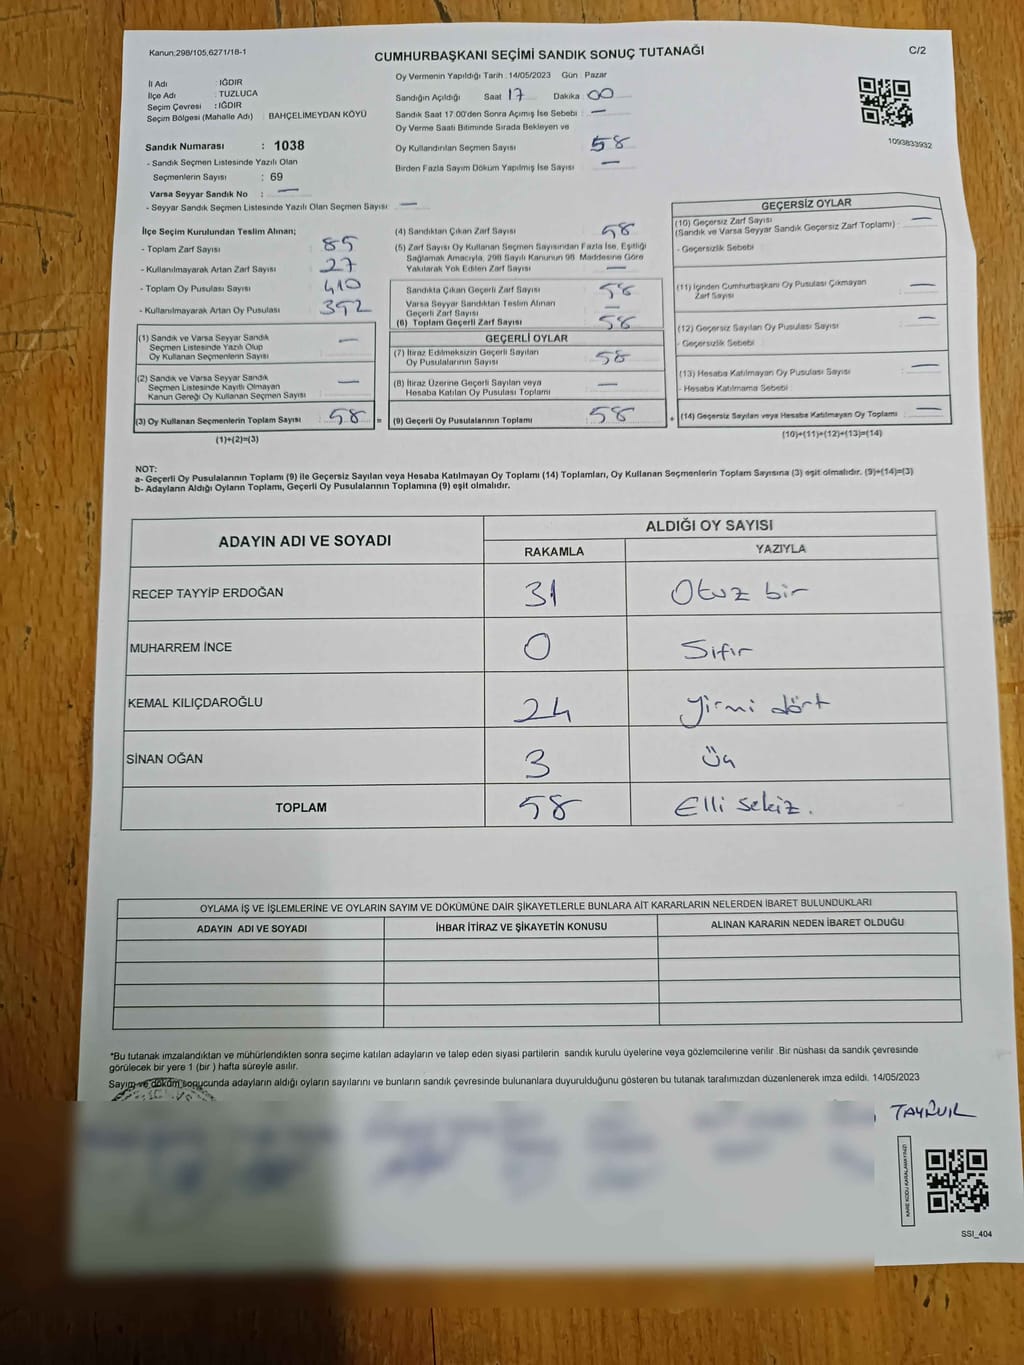 Kanun:298/105,6271/18-1
CUMHURBAŞKANI SEÇİMİ SANDIK SONUÇ TUTANAĞI
C/2
İl Adı : IĞDIR
İlçe Adı : TUZLUCA
Seçim Çevresi : IĞDIR
Seçim Bölgesi (Mahalle Adı) : BAHÇELİMEYDAN KÖYÜ
Sandık Numarası : 1038
- Sandık Seçmen Listesinde Yazılı Olan
Seçmenlerin Sayısı : 69
Varsa Seyyar Sandık No : —
- Seyyar Sandık Seçmen Listesinde Yazılı Olan Seçmen Sayısı : —
Oy Vermenin Yapıldığı Tarih : 14/05/2023 Gün : Pazar
Sandığın Açıldığı Saat 17 Dakika 00
Sandık Saat 17:00'den Sonra Açımış İse Sebebi : —
Oy Verme Saati Bitiminde Sırada Bekleyen ve
Oy Kullandırılan Seçmen Sayısı 58
Birden Fazla Sayım Döküm Yapılmış İse Sayısı —
1093833932
İlçe Seçim Kurulundan Teslim Alınan;
- Toplam Zarf Sayısı 85
- Kullanılmayarak Artan Zarf Sayısı : 27
- Toplam Oy Pusulası Sayısı : 410
- Kullanılmayarak Artan Oy Pusulası : 352
(1) Sandık ve Varsa Seyyar Sandık
Seçmen Listesinde Yazılı Olup
Oy Kullanan Seçmenlerin Sayısı —
(2) Sandık ve Varsa Seyyar Sandık
Seçmen Listesinde Kayıtlı Olmayan
Kanun Gereği Oy Kullanan Seçmen Sayısı —
(3) Oy Kullanan Seçmenlerin Toplam Sayısı : 58 =
(1)+(2)=(3)
(4) Sandıktan Çıkan Zarf Sayısı 58
(5) Zarf Sayısı Oy Kullanan Seçmen Sayısından Fazla İse, Eşitliği
Sağlamak Amacıyla, 298 Sayılı Kanunun 98. Maddesine Göre
Yakılarak Yok Edilen Zarf Sayısı —
Sandıkta Çıkan Geçerli Zarf Sayısı 58
Varsa Seyyar Sandıktan Teslim Alınan
Geçerli Zarf Sayısı —
(6) Toplam Geçerli Zarf Sayısı 58
GEÇERLİ OYLAR
(7) İtiraz Edilmeksizin Geçerli Sayılan
Oy Pusulalarının Sayısı 58
(8) İtiraz Üzerine Geçerli Sayılan veya
Hesaba Katılan Oy Pusulası Toplamı —
(9) Geçerli Oy Pusulalarının Toplamı 58 +
GEÇERSİZ OYLAR
(10) Geçersiz Zarf Sayısı
(Sandık ve Varsa Seyyar Sandık Geçersiz Zarf Toplamı) : —
- Geçersizlik Sebebi
(11) İçinden Cumhurbaşkanı Oy Pusulası Çıkmayan
Zarf Sayısı —
(12) Geçersiz Sayılan Oy Pusulası Sayısı —
- Geçersizlik Sebebi
(13) Hesaba Katılmayan Oy Pusulası Sayısı —
- Hesaba Katılmama Sebebi
(14) Geçersiz Sayılan veya Hesaba Katılmayan Oy Toplamı —
(10)+(11)+(12)+(13)=(14)
NOT:
a- Geçerli Oy Pusulalarının Toplamı (9) ile Geçersiz Sayılan veya Hesaba Katılmayan Oy Toplamı (14) Toplamları, Oy Kullanan Seçmenlerin Toplam Sayısına (3) eşit olmalıdır. (9)+(14)=(3)
b- Adayların Aldığı Oyların Toplamı, Geçerli Oy Pusulalarının Toplamına (9) eşit olmalıdır.
ADAYIN ADI VE SOYADI
ALDIĞI OY SAYISI
RAKAMLA YAZIYLA
RECEP TAYYİP ERDOĞAN 31 Otuz bir
MUHARREM İNCE 0 Sıfır
KEMAL KILIÇDAROĞLU 24 Yirmi dört
SİNAN OĞAN 3 Üç
TOPLAM 58 Elli sekiz.
OYLAMA İŞ VE İŞLEMLERİNE VE OYLARIN SAYIM VE DÖKÜMÜNE DAİR ŞİKAYETLERLE BUNLARA AİT KARARLARIN NELERDEN İBARET BULUNDUKLARI
ADAYIN ADI VE SOYADI İHBAR İTİRAZ VE ŞİKAYETİN KONUSU ALINAN KARARIN NEDEN İBARET OLDUĞU
*Bu tutanak imzalandıktan ve mühürlendikten sonra seçime katılan adayların ve talep eden siyasi partilerin sandık kurulu üyelerine veya gözlemcilerine verilir .Bir nüshası da sandık çevresinde
görülecek bir yere 1 (bir ) hafta süreyle asılır.
Sayım ve döküm sonucunda adayların aldığı oyların sayılarını ve bunların sandık çevresinde bulunanlara duyurulduğunu gösteren bu tutanak tarafımızdan düzenlenerek imza edildi. 14/05/2023
KARE KODU KARALAMAYINIZ!
SSI_404